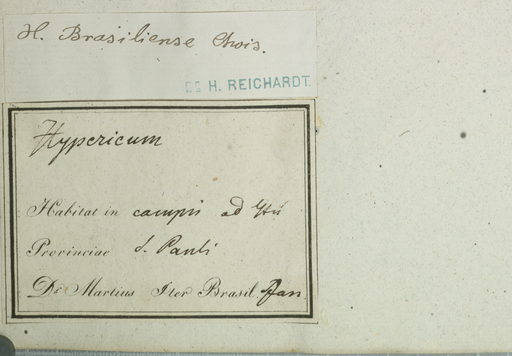 H. Brasiliense Chois.
H. REICHARDT.
Hypericum
Habitat in campis ad Ytú
Provinciae S. Pauli
Dr Martius Iter Brasil. Jan